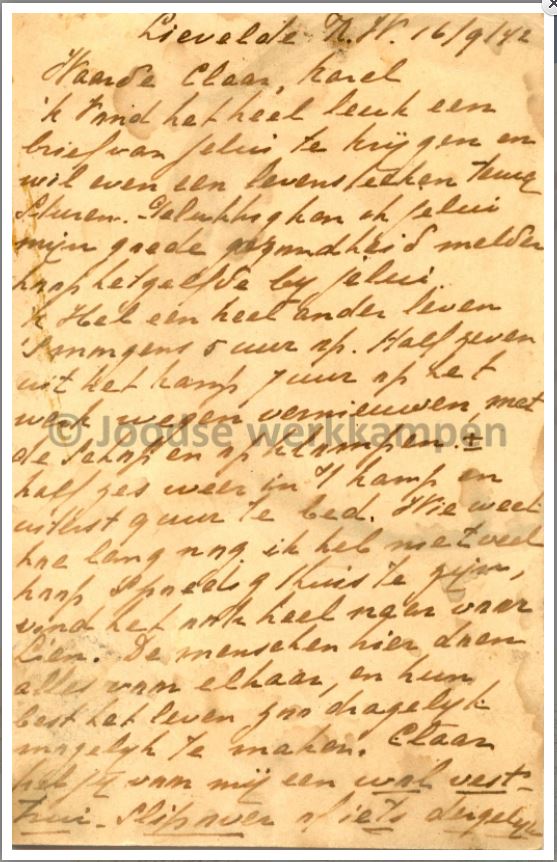 Lievelde N.W. 16/9/42
Waarde Claar, Karel
'k Vind het heel leuk een
brief van jelui te krijgen en
wil even een levensteeken terug
sturen. Gelukkig kan ik jelui
mijn goede gezondheid melden
hoop hetzelfde by jelui.
'k Heb een heel ander leven
'smorgens 5 uur op. Half zeven
uit het kamp 7 uur op het
werk wegen vernieuwen, met
© Joodse werkkampen
de schop en op klompen. ±
half zes weer in 't kamp en
uiterst 9 uur te bed. Wie weet
hoe lang nog ik heb niet veel
hoop spoedig thuis te zijn,
vind het ook heel naar voor
Lien. De menschen hier doen
alles voor elkaar, en hun
best het leven zoo dragelyk
mogelyk te maken. Claar
heb jij voor mij een wol vest-
trui - slipover of iets dergelyk